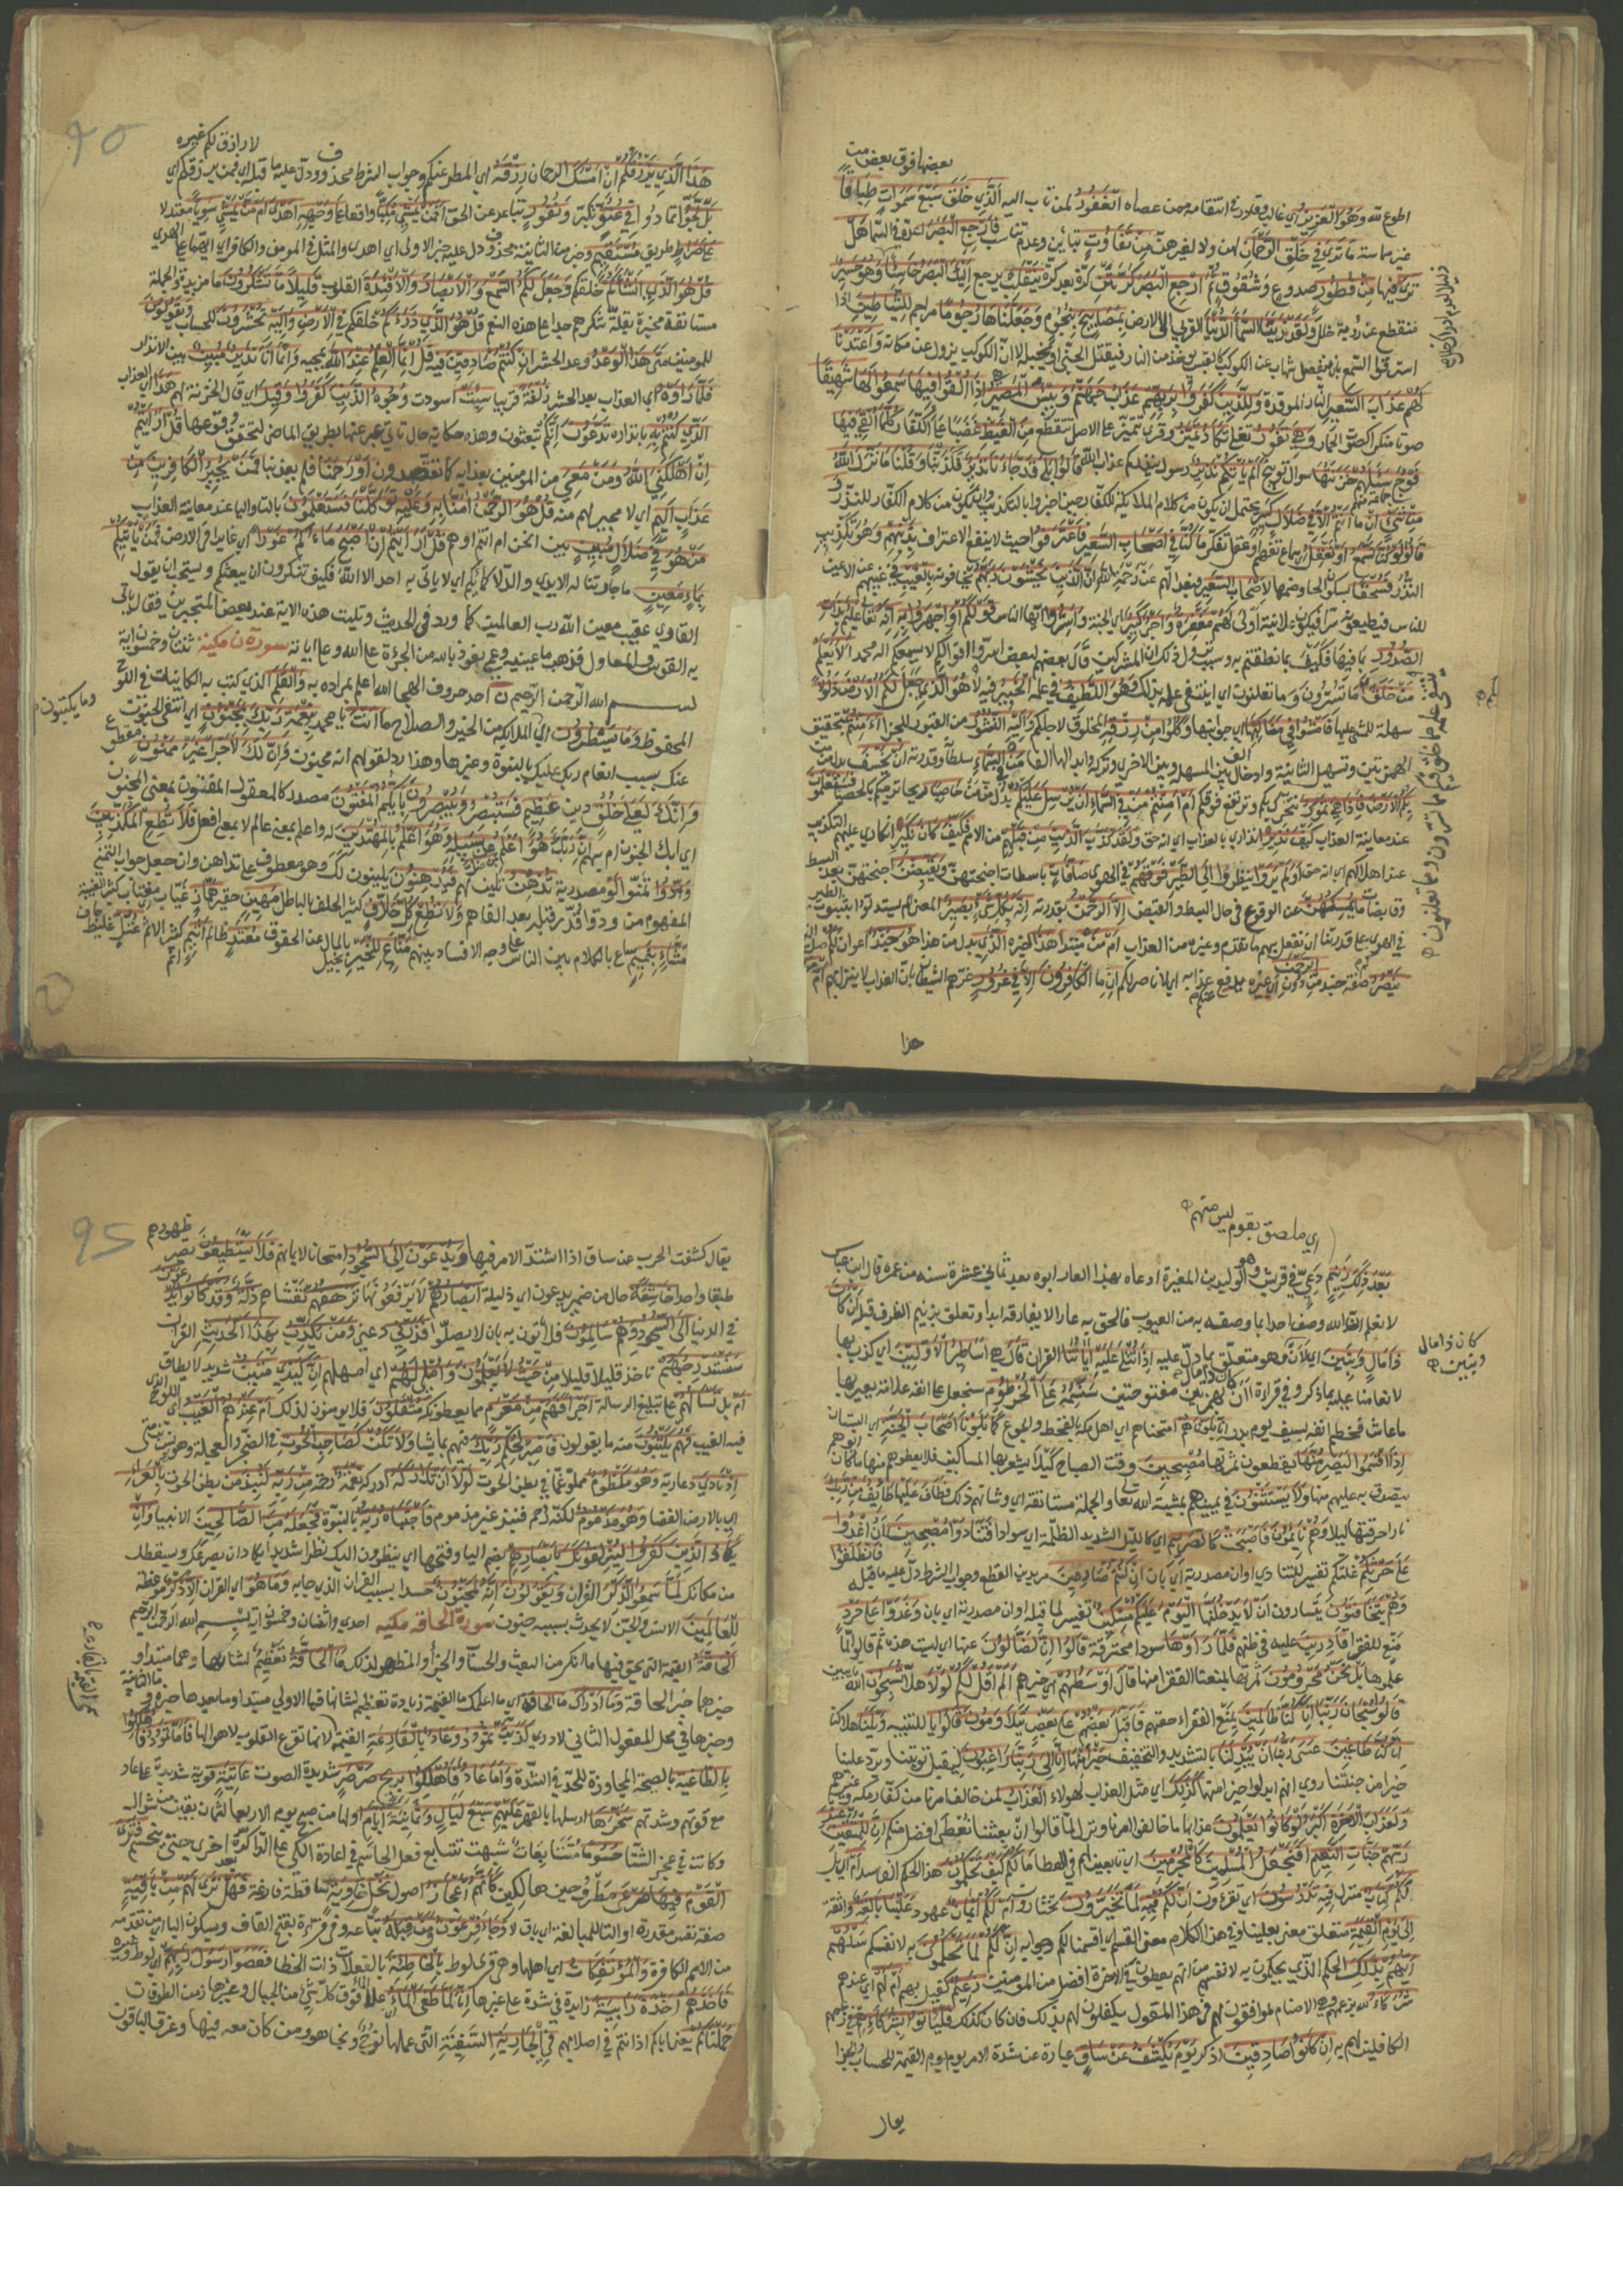 بعضها فوق بعض من
اطوع لله وهو العزيز اي غالب وقادر في انتقامه ممن عصاه الغفور لمن تاب اليه الذي خلق سبع سموات طباقا
غير مماسة ما ترى في خلق الرحمان لهن ولا لغيرهن من تفاوت تباين وعدم تناسب فارجع البصر اعده في السما هل
ترى فيها من فطور صدوع وشقوق ثم ارجع البصر كرتين كرة بعد كرة ينقلب يرجع اليك البصر خاسئا وهو حسير
منقطع عن رؤية خلل ولقد زينا السما الدنيا القربى الى الارض بمصابيح بنجوم وجعلناها رجوما مراجم للشياطين اذا
استرقوا السمع بان ينفصل شهاب عن الكوكب كالقبس يؤخذ من النار فيقتل الجني او يخبله لا ان الكوكب يزول عن مكانه واعتدنا
لهم عذاب السعير النار الموقدة وللذين كفروا بربهم عذاب جهنم وبئس المصير اذا القوا فيها سمعوا لها شهيقا
صوتا منكرا كصوت الحمار وهي تفور تغلي تكاد تميز وقرئ تتميز على الاصل تتقطع من الغيظ غضبا على الكفار كلما القي فيها
فوج جماعة منهم سئلهم خزنتها سوال توبيخ الم ياتكم نذير رسول ينذركم عذاب الله قالوا بلى قد جاءنا نذير فكذبنا وقلنا ما نزل الله
من شيء ان ما انتم الا في ضلال كبير يحتمل ان يكون من كلام الملائكة للكفار حين اخبروا بالتكذيب وان يكون من كلام الكفار للنذر و
قالوا لو كنا نسمع او نعقل اي سماع تفهم وعقل تفكر ما كنا في اصحاب السعير فاعترفوا حيث لا ينفع الاعتراف بذنبهم وهو تكذيب
النذر فسحقا بسكون الحا وضمها لاصحاب السعير فبعدا لهم عن رحمة الله ان الذين يخشون ربهم يخافونه بالغيب في غيبتهم عن الاعين
الناس فيطيعونه سرا فيكون علانية اولى لهم مغفرة واجر كبير اي الجنة واسروا ايها الناس قولكم او اجهروا به انه تعالى عليم بذات
الصدور بما فيها فكيف بما نطقتم به وسبب نزول ذلك ان المشركين قال بعضهم لبعض اسروا اقوالكم لا يسمعكم اله محمد الا يعلم
من خلق ما تسرون وما تعلنون اي اينتفي علمه بذلك وهو اللطيف في علمه الخبير فيه لا هو الذي جعل لكم الارض ذلولا
سهلة للمشي عليها فامشوا في مناكبها جوانبها وكلوا من رزقه المخلوق لاجلكم واليه النشور من القبور للجزا أأمنتم بتحقيق
الهمزتين وتسهيل الثانية وادخال الف بين المسهلة وبين الاخرى وتركه وابدالها الفا من في السماء سلطانه وقدرته ان يخسف بدل من من
بكم الارض فاذا هي تمور تتحرك بكم وترتفع فوقكم ام امنتم من في السماء ان يرسل بدل من من عليكم حاصبا ريحا ترميكم بالحصبا فستعلمون
عند معاينة العذاب كيف نذير انذاري بالعذاب اي انه حق ولقد كذب الذين من قبلهم من الامم فكيف كان نكير انكاري عليهم بالتكذيب
عند اهلاكهم اي انه حق اولم يروا ينظروا الى الطير فوقهم في الهوى صافات باسطات اجنحتهن ويقبضن اجنحتهن بعد البسط
وقابضات ما يمسكهن عن الوقوع في حال البسط والقبض الا الرحمن بقدرته انه بكل شيء بصير المعنى الم يستدلوا بثبوت الطير
في الهوى على قدرتنا ان نفعل بهم ما تقدم وغيره من العذاب امن مبتدا هذا خبره الذي بدل من هذا هو جند اعوان لكم صلة الذي
ينصركم صفة جند من دون الرحمن اي غيره يدفع عنكم عذابه اي لا ناصر لكم ان ما الكافرون الا في غرور غرهم الشيطان بان العذاب لا ينزل بهم امن
هذا
لا رازق لكم غيره
هذا الذي يرزقكم ان امسك الرحمان رزقه اي المطر عنكم وجواب الشرط محذوف ودل عليه ما قبله اي فمن يرزقكم اي
بل لجوا تمادوا في عتو تكبر ونفور تباعد عن الحق افمن يمشي مكبا واقعا على وجهه اهدى امن يمشي سويا معتدلا
على صراط طريق مستقيم وخبر من الثانية محذوف دل عليه خبر الاولى اي اهدى والمثل في المومن والكافر اي ايهما على الهدى
قل هو الذي انشأكم خلقكم وجعل لكم السمع والابصار والافئدة القلوب قليلا ما تشكرون ما مزيدة والجملة
مستانفة مخبرة بقلة شكرهم جدا على هذه النعم قل هو الذي ذرءكم خلقكم في الارض واليه تحشرون للحساب ويقولون
للمومنين متى هذا الوعد وعد الحشر ان كنتم صادقين فيه قل انما العلم عند الله بمجيه وانما انا نذير مبين بين الانذار
فلما راوه اي العذاب بعد الحشر زلفة قريبا سيئت اسودت وجوه الذين كفروا وقيل اي قال الخزنة لهم هذا اي العذاب
الذي كنتم به بانذاره تدعون انكم لا تبعثون وهذه حكاية حال تاتي عبر عنها بطريق الماضي لتحقق وقوعها قل ارايتم
ان اهلكني الله ومن معي من المومنين بعذابه كما تقصدون او رحمنا فلم يعذبنا فمن يجير الكافرين من
عذاب اليم اي لا مجير لهم منه قل هو الرحمن امنا به وعليه توكلنا فستعلمون بالتا واليا عند معاينة العذاب
من هو في ضلال مبين بين انحن ام انتم او هم قل ارايتم ان اصبح ماءكم غورا اي غايرا في الارض فمن ياتيكم
بماء معين جار تناله الايدي والدلا كمائكم اي لا ياتي به احد الا الله فكيف تنكرون ان يبعثكم ويستحب ان يقول
القاري عقيب معين الله رب العالمين كما ورد في الحديث وتليت هذه الاية عند بعض المتجبرين فقال ياتي
به الفؤس والمعاول فذهب ماء عينيه وعمي نعوذ بالله من الجرءة على الله وعلى اياته سورة ن مكية ثنتان وخمسون اية
بسم الله الرحمن الرحيم ن احد حروف الهجا الله اعلم بمراده به والقلم الذي كتب به الكائنات في اللوح
المحفوظ وما يسطرون اي الملائكة من الخير والصلاح ما انت يا محمد بنعمة ربك بمجنون اي انتفى الجنون
عنك بسبب انعام ربك عليك بالنبوة وغيرها وهذا رد لقولهم انه مجنون وان لك لاجرا غير ممنون مقطوع
وانك لعلى خلق دين عظيم فستبصر ويبصرون بايكم المفتون مصدر كالمعقول المفتون بمعنى المجنون
اي ابك الجنون ام بهم ان ربك هو اعلم بمن ضل عن سبيله وهو اعلم بالمهتدين له واعلم بمعنى عالم لا بمعنى افعل فلا تطع المكذبين
ودوا تمنوا لو مصدرية تدهن تلين لهم فيدهنون يلينون لك وهو معطوف على تدهن وان جعل جواب التمني
المفهوم من ودوا قدر قبله بعد الفا هم ولا تطع كل حلاف كثير الحلف بالباطل مهين حقير هماز عياب مغتاب كثير الغيبة
مشاء بنميم ساع بالكلام بين الناس على وجه الافساد بينهم مناع للخير بخيل بالمال عن الحقوق معتد ظالم اثيم كثير الاثم عتل غليظ جاف
وما يكتبون
اي ملصق بقوم ليس منهم
بعد ذلك زنيم دعي في قريش وهو الوليد بن المغيرة ادعاه بهذا العار ابوه بعد ثماني عشرة سنه من عمره قال ابن عباس
لا نعلم ان الله وصف احدا بما وصفه به من العيوب فالحق به عارا لا يفارقه ابدا وتعلق بزنيم الظرف قبله ان كان
ذا مال وبنين اي لان وهو متعلق بما دل عليه اذا تتلى عليه اياتنا القران قال هي اساطير الاولين اي كذب بها
لانعامنا عليه بما ذكر وفي قراءة أأن بهمزتين مفتوحتين سنسمه على الخرطوم سنجعل على انفه علامة يعير بها
ما عاش فخطم انفه بسيف يوم بدر انا بلوناهم امتحناهم اي اهل مكة بالقحط والجوع كما بلونا اصحاب الجنة اي البستان
اذ اقسموا ليصرمنها يقطعون ثمرتها مصبحين وقت الصباح كيلا يشعر بها المساكين فلا يعطوهم منها ما كان ابوهم
يتصدق به عليهم منها ولا يستثنون في يمينهم بمشيئة الله تعالى والجملة مستانفة اي وشانهم ذلك فطاف عليها طائف من ربك
نار احرقتها ليلا وهم نائمون فاصبحت كالصريم اي كالليل الشديد الظلمة اي سوداء فتنادوا مصبحين ان اغدوا
على حرثكم غلتكم تفسير للتنادي او ان مصدرية اي بان ان كنتم صارمين مريدين القطع وجواب الشرط دل عليه ما قبله فانطلقوا
وهم يتخافتون يتسارون ان لا يدخلنها اليوم عليكم مسكين تفسير لما قبله او ان مصدرية اي بان وغدوا على حرد
منع للفقراء قادرين عليه في ظنهم فلما راوها سودا محترقة قالوا انا لضالون عنها اي ليست هذه ثم قالوا لما
علموها بل نحن محرومون ثمرتها بمنعنا الفقرا منها قال اوسطهم خيرهم الم اقل لكم لولا هلا تسبحون الله تايبين
قالوا سبحان ربنا انا كنا ظالمين بمنع الفقراء حقهم فاقبل بعضهم على بعض يتلاومون قالوا يا للتنبيه ويلنا هلاكنا
انا كنا طاغين عسى ربنا ان يبدلنا بالتشديد والتخفيف خيرا منها انا الى ربنا راغبون ليقبل توبتنا ويرد علينا
خيرا من جنتنا روي انهم ابدلوا خيرا منها كذلك اي مثل العذاب لهولاء العذاب لمن خالف امرنا من كفار مكة وغيرهم
ولعذاب الاخرة اكبر لو كانوا يعلمون عذابها ما خالفوا امرنا ونزل لما قالوا ان بعثنا نعطى افضل منكم ان للمتقين عند
ربهم جنات النعيم افنجعل المسلمين كالمجرمين اي تابعين لهم في العطا ما لكم كيف تحكمون هذا الحكم الفاسد ام اي بل
لكم كتاب منزل فيه تدرسون اي تقرءون ان لكم فيه لما تخيرون تختارون ام لكم ايمان عهود علينا بالغة واثقة
الى يوم القيمة متعلق معنى بعلينا وفي هذا الكلام معنى القسم اي اقسمنا لكم وجوابه ان لكم لما تحكمون به لانفسكم سلهم
ايهم بذلك الحكم الذي يحكمون به لانفسهم من انهم يعطون في الاخرة افضل من المومنين زعيم كفيل بهم ام لهم اي عندهم
شركاء موافقون لهم في هذا المقول يكفلون لهم بذلك فان كان كذلك فلياتوا بشركائهم
الكافلين لهم به ان كانوا صادقين اذكر يوم يكشف عن ساق عبارة عن شدة الامر يوم القيمة للحساب والجزا
كان ذا مال
وبنين
يقال
ظهورهم
يقال كشفت الحرب عن ساق اذا اشتد الامر فيها ويدعون الى السجود امتحانا لايمانهم فلا يستطيعون تصير
طبقا واحدا خاشعة حال من ضمير يدعون اي ذليلة ابصارهم لا يرفعونها ترهقهم تغشاهم ذلة وقد كانوا يدعون
في الدنيا الى السجود وهم سالمون فلا ياتون به بان لا يصلوا فذرني دعني ومن يكذب بهذا الحديث القران
سنستدرجهم ناخذهم قليلا قليلا من حيث لا يعلمون واملي لهم امهلهم ان كيدي متين شديد لا يطاق
ام بل تسألهم على تبليغ الرسالة اجرا فهم من مغرم مما يعطونكه مثقلون فلا يومنون لذلك ام عندهم الغيب اي اللوح الذي
فيه الغيب فهم يكتبون منه ما يقولون فاصبر لحكم ربك فيهم بما يشا ولا تكن كصاحب الحوت في الضجر والعجلة وهو يونس
اذ نادى دعا ربه وهو مكظوم مملو غما في بطن الحوت لولا ان تداركه ادركه نعمة رحمة من ربه لنبذ من بطن الحوت بالعراء
اي بالارض الفضا وهو مذموم لكنه رحم فنبذ غير مذموم فاجتباه ربه بالنبوة فجعله من الصالحين الانبيا وان
يكاد الذين كفروا ليزلقونك بابصارهم بضم اليا وفتحها اي ينظرون اليك نظرا شديدا يكاد ان يصرعك ويسقطك
من مكانك لما سمعوا الذكر القران ويقولون انه لمجنون حسدا بسبب القران الذي جا به وما هو اي القران الا ذكر موعظة
للعالمين الانس والجن لا يحدث بسببه جنون سورة الحاقة مكيه احدى واثنتان وخمسون اية بسم الله الرحمن الرحيم
الحاقة القيمة التي يحق فيها ما انكر من البعث والحساب والجزا او المظهرة لذلك ما الحاقة تعظيم لشانها وهما مبتدا و
خبرهما خبر الحاقة وما ادراك ما الحاقة اي ما اعلمك ما القيمة زيادة تعظيم لشانها فما الاولى مبتدا وما بعدها خبره وما الثانية
وخبرها في محل المفعول الثاني لادرى كذبت ثمود وعاد بالقارعة القيمة لانها تقرع القلوب باهوالها فاما ثمود فاهلكوا
بالطاغية بالصيحة المجاوزة للحد في الشدة واما عاد فاهلكوا بريح صرصر شديدة الصوت عاتية قوية شديدة على عاد
مع قوتهم وشدتهم سخرها ارسلها بالقهر عليهم سبع ليال وثمانية ايام اولها من صبح يوم الاربعا لثمان بقين من شوال
وكانت في عجز الشتا حسوما متتابعات شبهت بتتابع فعل الحاسم في اعادة الكي على الدا كرة بعد اخرى حتى ينحسم فترى
القوم فيها صرعى مطروحين هالكين كانهم اعجاز اصول نخل خاوية ساقطة فارغة فهل ترى لهم من باقية
صفة نفس مقدرة او التا للمبالغة اي باق لا وجاء فرعون ومن قبله تباعه وفي قراءة بفتح القاف وسكون البا اي من تقدمه
من الامم الكافرة والموتفكات اي اهلها وهي قرى لوط بالخاطئة بالفعلات ذات الخطا فعصوا رسول ربهم اي لوط وغيره
فاخذهم اخذة رابية زائدة في شدة على غيرها انا لما طغى الماء علا فوق كل شيء من الجبال وغيرها زمن الطوفان
حملناكم يعني اباءكم اذ انتم في اصلابهم في الجارية السفينة التي عملها نوح ونجا هو ومن كان معه فيها وغرق الباقون